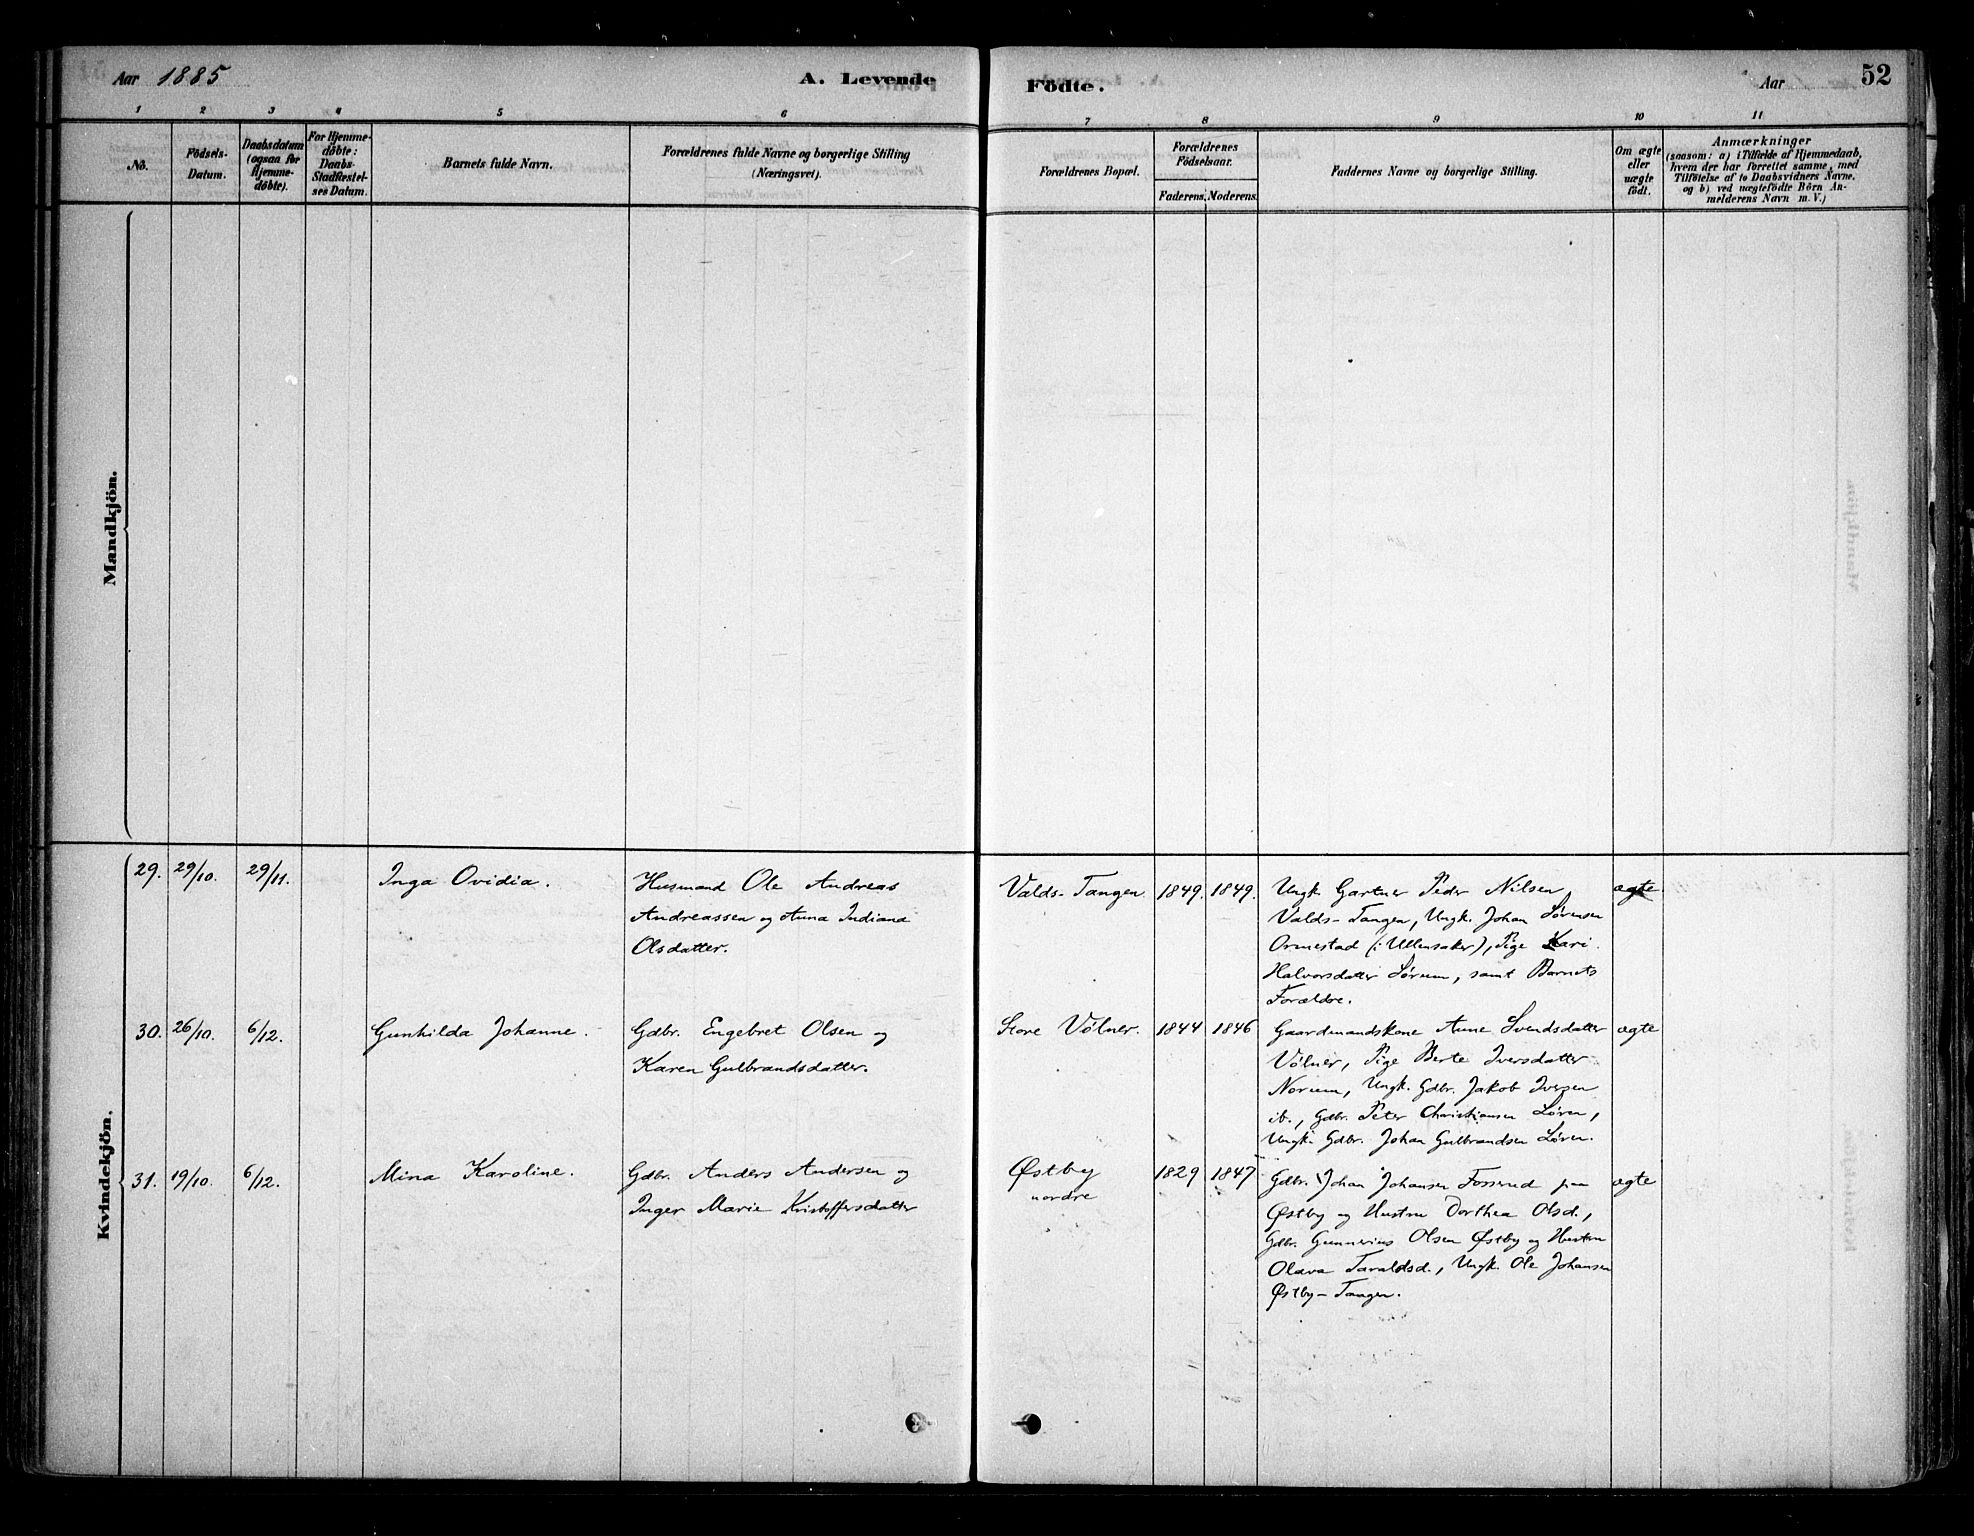 Aar 1885
A. Levende
Födte.
Aar
52
1 2 3 4 5 6 7 8 9 10 11
No.
Födsels-
Datum.
Daabsdatum
(ogsaa for
Hjemme-
döbte).
For Hjemme-
döbte:
Daabs-
Stadfæstel-
ses Datum.
Barnets fulde Navn.
Forældrenes fulde Navne og borgerlige Stilling
(Næringsvei).
Forældrenes Bopæl.
Forældrenes
Födselsaar.
Faderens. Moderens.
Faddernes Navne og borgerlige Stilling.
Om ægte
eller
uægte
födt.
Anmærkninger
(saasom: a) i Tilfælde af Hjemmedaab,
hvem der har forrettet samme, med
Tilföielse af to Daabsvidners Navne,
og b) ved uægtefödte Börn An-
melderens Navn m. V.)
Mandkjön.
Kvindekjön.
29. 29/10. 29/11. Inga Ovidia.
Husmand Ole Andreas
Andreassen og Anna Indiana
Olsdatter.
Valds-Tangen 1849. 1849.
Ungk. Gartner Peder Nilsen,
Valds-Tangen, Ungk. Johan Sørensen
Ormestad (i Ullensaker), Pige Kari
Halvorsdatter Sørum, samt Barnets
Forældre.
ægte
30. 26/10. 6/12. Gunhilda Johanne.
Gdbr. Engebret Olsen og
Karen Gulbrandsdatter.
Store Vølner. 1844 1846
Gaardmandskone Anne Svendsdatter
Vølner, Pige Berte Iversdatter
Norum, Ungk. Gdbr. Jakob Iversen
ib., Gdbr. Peter Christiansen Løren,
Ungk. Gdbr. Johan Gulbrandsen Løren.
ægte
31. 19/10. 6/12. Mina Karoline.
Gdbr. Anders Andersen og
Inger Marie Kristoffersdatter
Østby
nordre
1829 1847
Gdbr. Johan Johansen Fosserud paa
Østby og Hustru Dorthea Olsd.,
Gdbr. Gunnerius Olsen Østby og Hustru
Olava Taraldsd., Ungk. Ole Johansen
Østby-Tangen.
ægte